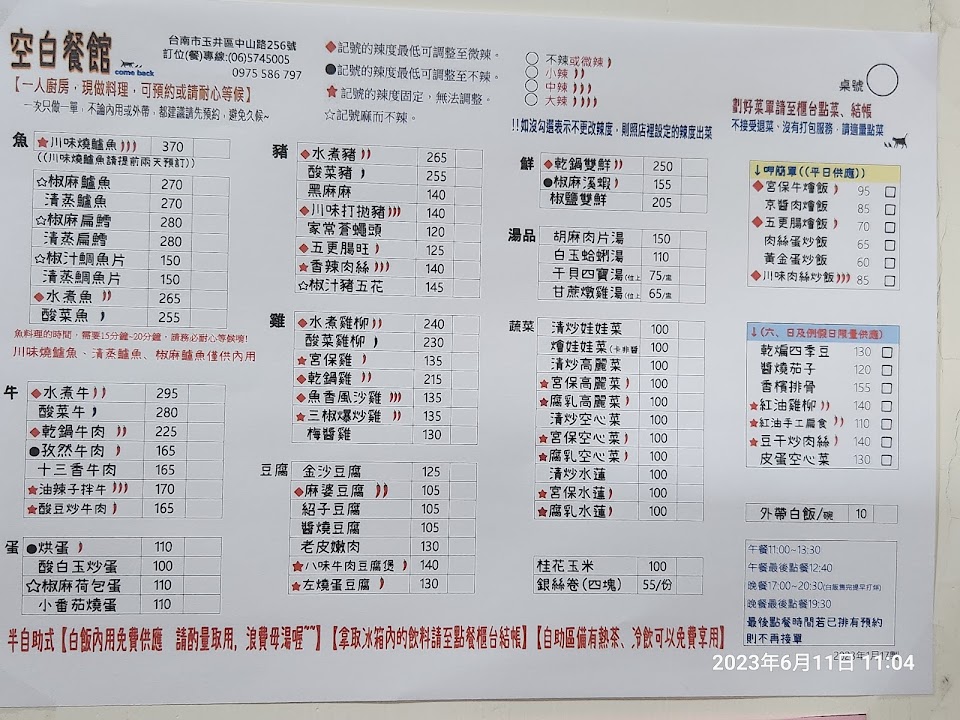 空白餐館
come back
台南市玉井區中山路256號
訂位(餐)專線:(06)5745005
0975 586 797
【一人廚房，現做料理，可預約或請耐心等候】
一次只做一單，不論內用或外帶，都建議請先預約，避免久候~
◆記號的辣度最低可調整至微辣。
●記號的辣度最低可調整至不辣。
★記號的辣度固定，無法調整。
☆記號麻而不辣。
○ 不辣或微辣
○ 小辣
○ 中辣
○ 大辣
!!如沒勾選表示不更改辣度，則照店裡設定的辣度出菜
桌號
劃好菜單請至櫃台點菜、結帳
不接受退菜、沒有打包服務，請適量點菜
魚
★川味燒鱸魚 370
((川味燒鱸魚請提前兩天預訂))
☆椒麻鱸魚 270
清蒸鱸魚 270
☆椒麻扁鱈 280
清蒸扁鱈 280
☆椒汁鯛魚片 150
清蒸鯛魚片 150
◆水煮魚 265
酸菜魚 255
魚料理的時間，需要15分鐘~20分鐘，請務必耐心等候唷!
川味燒鱸魚、清蒸鱸魚、椒麻鱸魚僅供內用
牛
◆水煮牛 295
酸菜牛 280
◆乾鍋牛肉 225
●孜然牛肉 165
十三香牛肉 165
★油辣子拌牛 170
★酸豆炒牛肉 165
蛋
●烘蛋 110
酸白玉炒蛋 100
☆椒麻荷包蛋 110
小番茄燒蛋 110
豬
◆水煮豬 265
酸菜豬 255
黑麻麻 140
◆川味打拋豬 140
家常蒼蠅頭 120
◆五更腸旺 125
★香辣肉絲 140
☆椒汁豬五花 145
雞
◆水煮雞柳 240
酸菜雞柳 230
★宮保雞 135
◆乾鍋雞 215
◆魚香風沙雞 135
★三椒爆炒雞 135
梅醬雞 130
豆腐
金沙豆腐 125
◆麻婆豆腐 105
紹子豆腐 105
醬燒豆腐 105
老皮嫩肉 130
★八味牛肉豆腐煲 140
★左燒蛋豆腐 130
鮮
◆乾鍋雙鮮 250
●椒麻溪蝦 155
椒鹽雙鮮 205
湯品
胡麻肉片湯 150
白玉蛤蜊湯 110
干貝四寶湯(位上) 75/盅
甘蔗燉雞湯(位上) 65/盅
蔬菜
清炒娃娃菜 100
燴娃娃菜(卡非醬 100
清炒高麗菜 100
★宮保高麗菜 100
★腐乳高麗菜 100
清炒空心菜 100
★宮保空心菜 100
★腐乳空心菜 100
清炒水蓮 100
★宮保水蓮 100
★腐乳水蓮 100
桂花玉米 100
銀絲卷(四塊) 55/份
↓呷簡單((平日供應))
◆宮保牛燴飯 95 □
京醬肉燴飯 85 □
◆五更腸燴飯 70 □
肉絲蛋炒飯 65 □
黃金蛋炒飯 60 □
◆川味肉絲炒飯 85 □
↓(六、日及例假日限量供應)
乾煸四季豆 130 □
醬燒茄子 120 □
香檳排骨 155 □
★紅油雞柳 140 □
★紅油手工扁食 110 □
★豆干炒肉絲 140 □
皮蛋空心菜 130 □
外帶白飯/碗 10
午餐11:00~13:30
午餐最後點餐12:40
晚餐17:00~20:30(白飯售完提早打烊)
晚餐最後點餐19:30
最後點餐時間若已排有預約
則不再接單
半自助式【白飯內用免費供應 請酌量取用，浪費母湯喔~~】【拿取冰箱內的飲料請至點餐櫃台結帳】【自助區備有熱茶、冷飲可以免費享用】
2023年1月17制
2023年6月11日 11:04